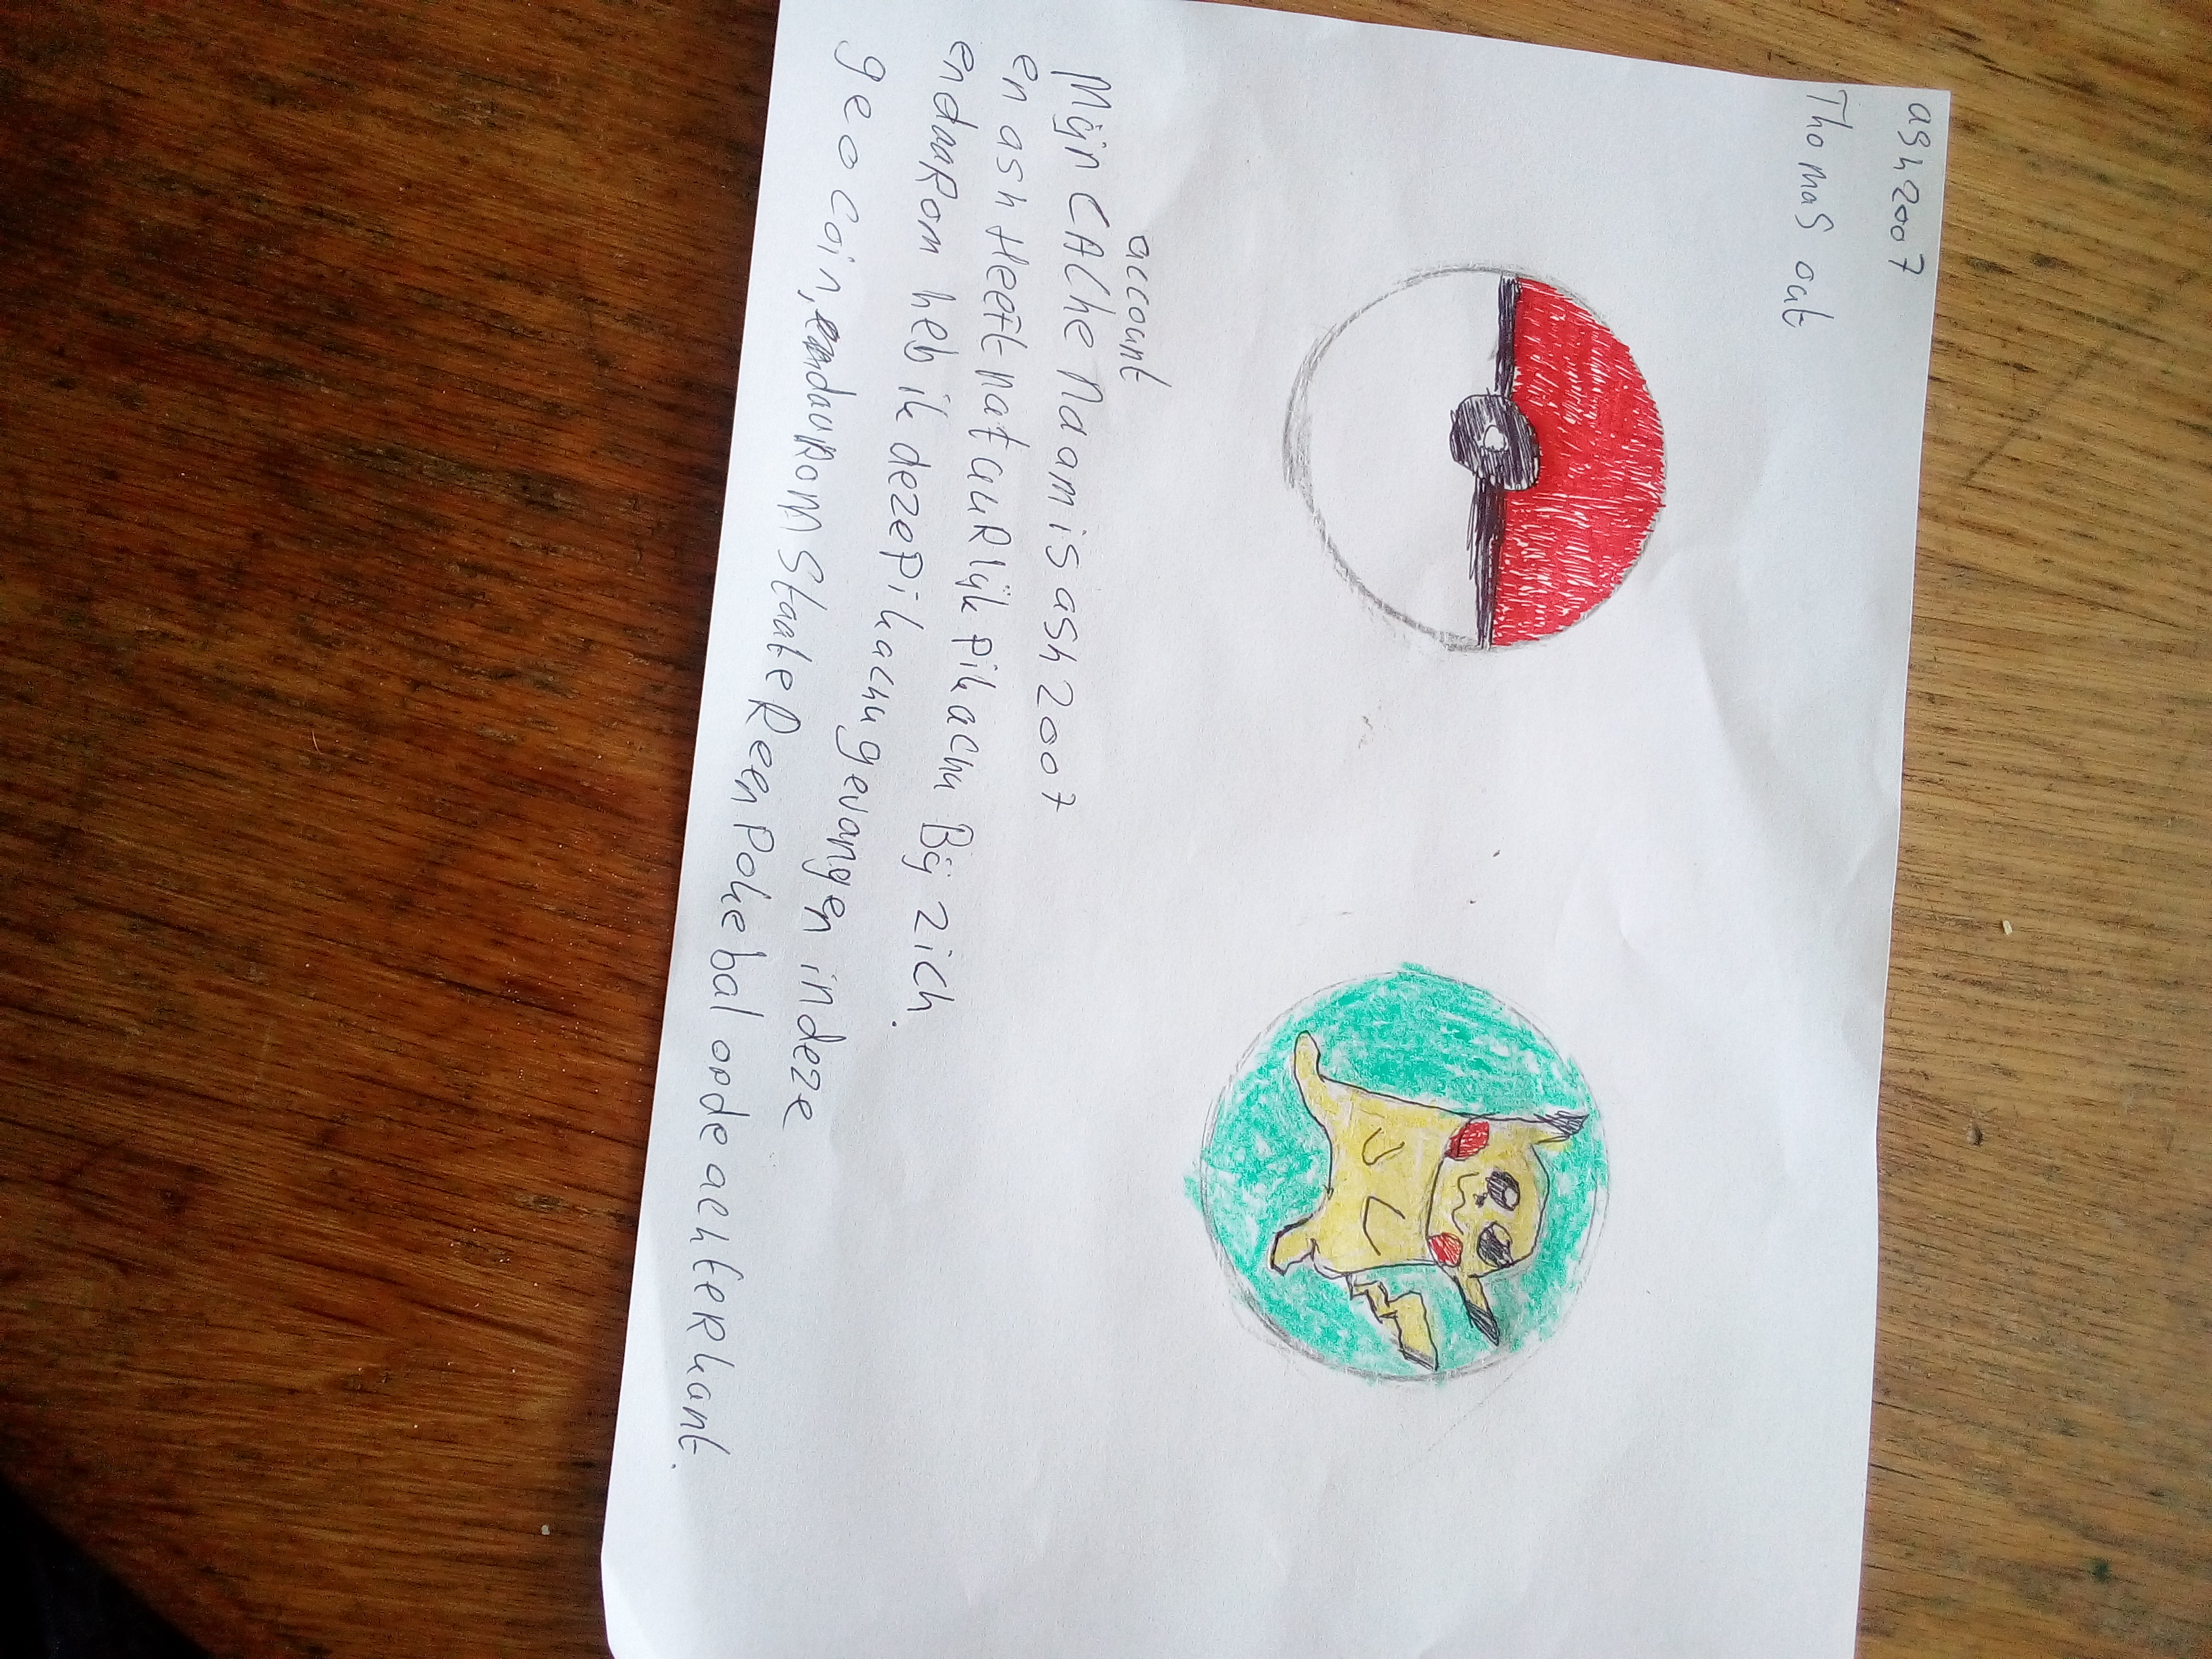 ash2007
Thomas out
account
Mijn CAChe naam is ash2007
en ash Heeft natuuRlijk Pikachu Bij zich.
en daaRom heb ik deze Pikachu gevangen in deze
geocoin, en daaRoM Staat eR een Pokebal op de achteRkant.